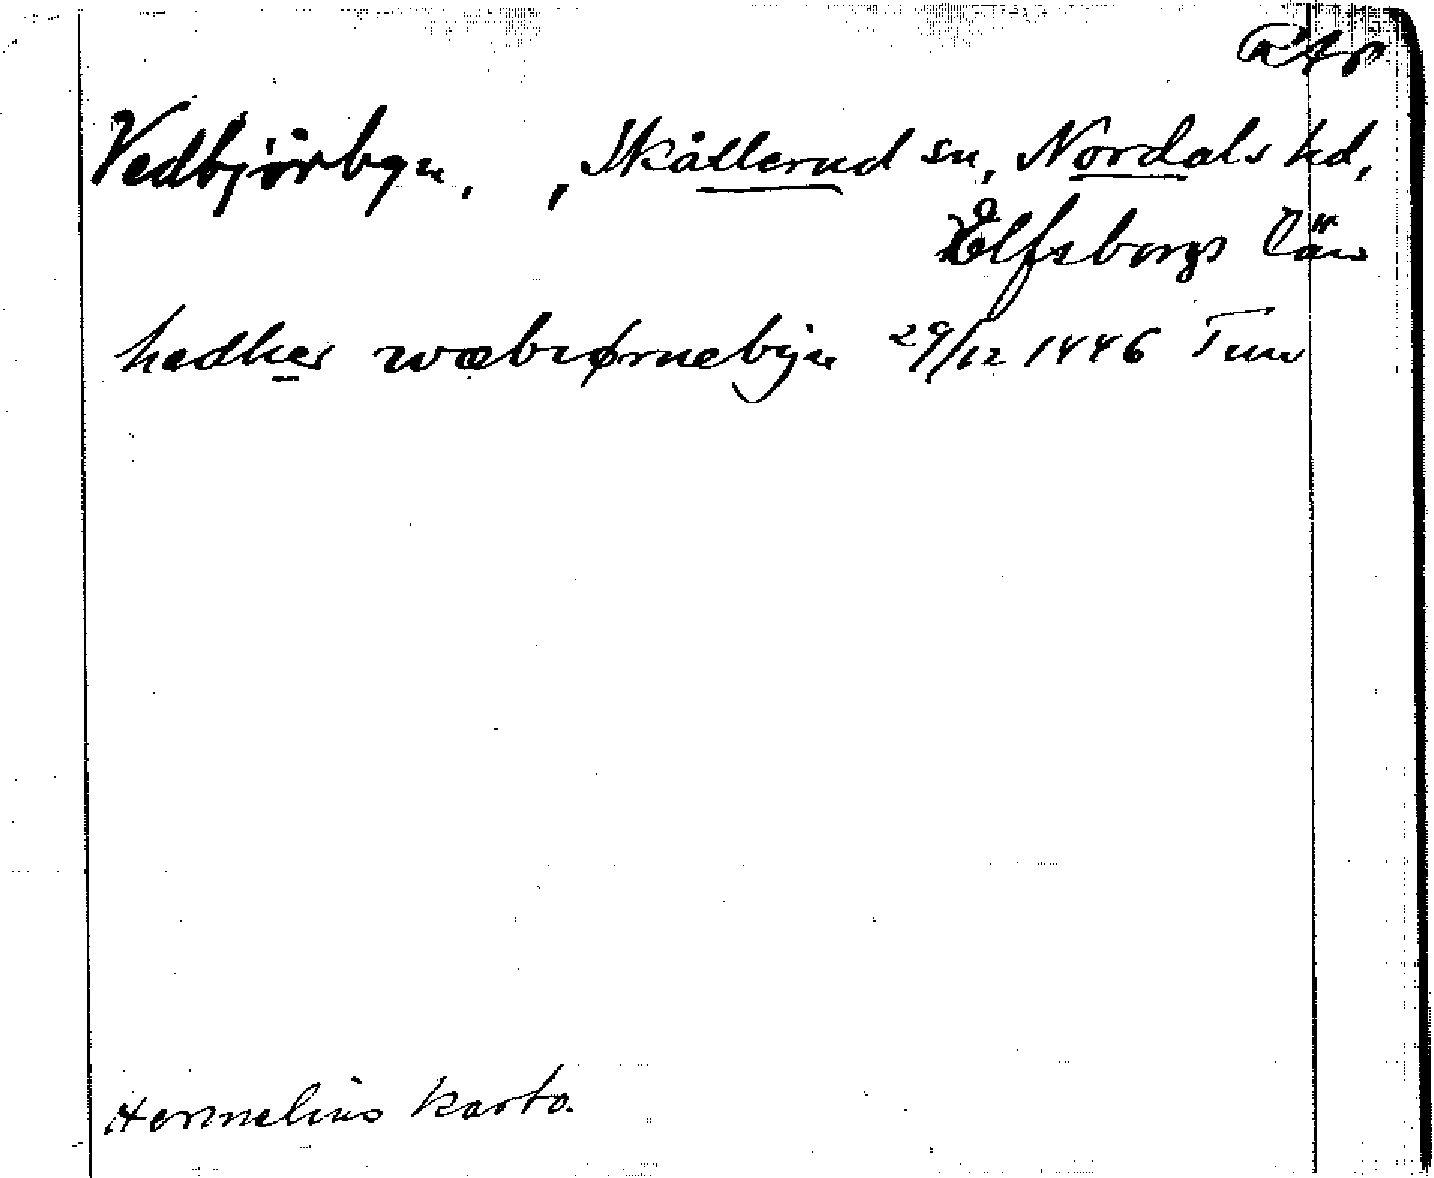 Vedbjörbyn, , Skållerud sn, Nordals hd,
Elfsborgs län
hedher wæbiørnebyn 29/12 1446 Tun
Hermelins karta.